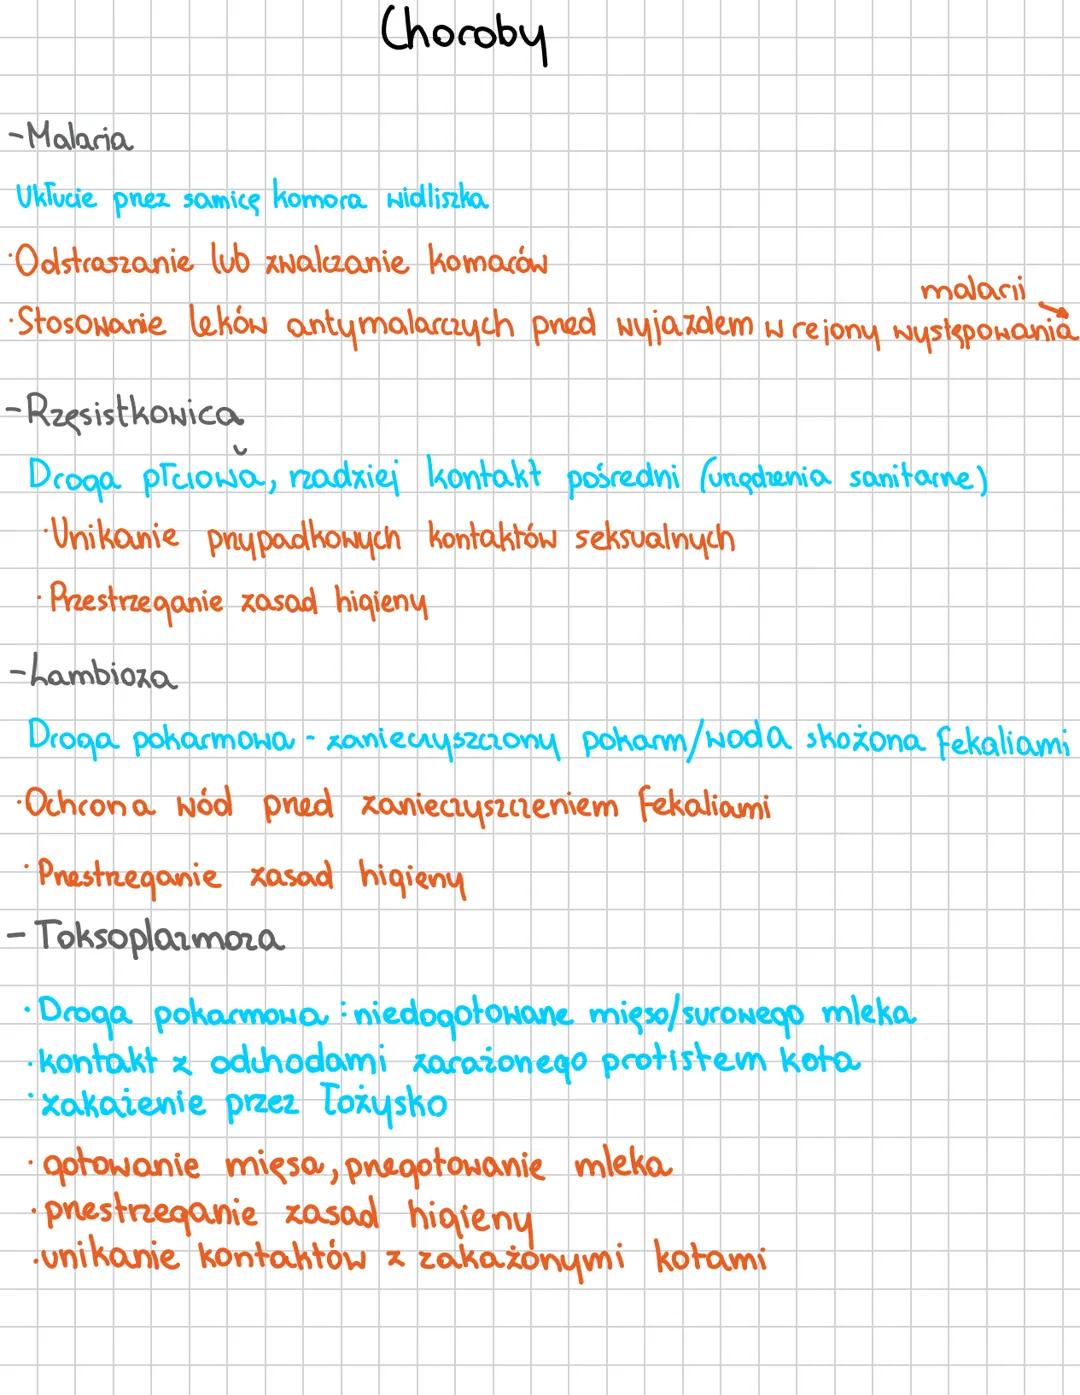 Choroby
-Malaria
Ukłucie przez samicę komora widliszka
·Odstraszanie lub zwalczanie komarów
malarii
·Stosowanie leków antymalarczych przed wyjazdem w rejony występowania
-Rzęsistkowica
Droga płciowa, rzadziej kontakt pośredni (urządzenia sanitarne)
·Unikanie przypadkowych kontaktów seksualnych
·Przestrzeganie zasad higieny
-Lambioza
Droga pokarmowa - zanieczyszczony pokarm/woda skożona fekaliami
·Ochrona wód przed zanieczyszczeniem fekaliami
·Przestrzeganie zasad higieny
-Toksoplazmoza
·Droga pokarmowa : niedogotowane mięso/surowego mleka
·kontakt z odchodami zarażonego protistem kota
·zakażenie przez łożysko
·gotowanie mięsa, przegotowanie mleka
·przestrzeganie zasad higieny
·unikanie kontaktów z zakażonymi kotami